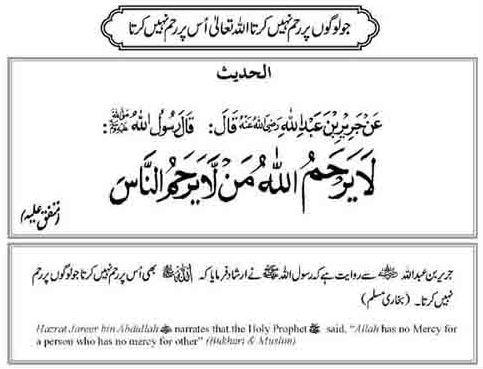 جو لوگوں پر رحم نہیں کرتا اللہ تعالیٰ اُس پر رحم نہیں کرتا
الحدیث
عَنْ جَرِیْرِ بْنِ عَبْدِ اللّٰهِ رَضِیَ اللّٰهُ عَنْهُ قَالَ: قَالَ رَسُوْلُ اللّٰهِ ﷺ:
لَا یَرْحَمُ اللّٰهُ مَنْ لَّا یَرْحَمُ النَّاسَ
(متفق علیه)
جریر بن عبداللہ رضی اللہ عنہ سے روایت ہے کہ رسول اللہ ﷺ نے ارشاد فرمایا کہ اللہ بھی اُس پر رحم نہیں کرتا جو لوگوں پر رحم
نہیں کرتا۔ (بخاری مسلم)
Hazrat Jareer bin Abdullah narrates that the Holy Prophet ﷺ said, "Allah has no Mercy for
a person who has no mercy for other" (Bukhari & Muslim)